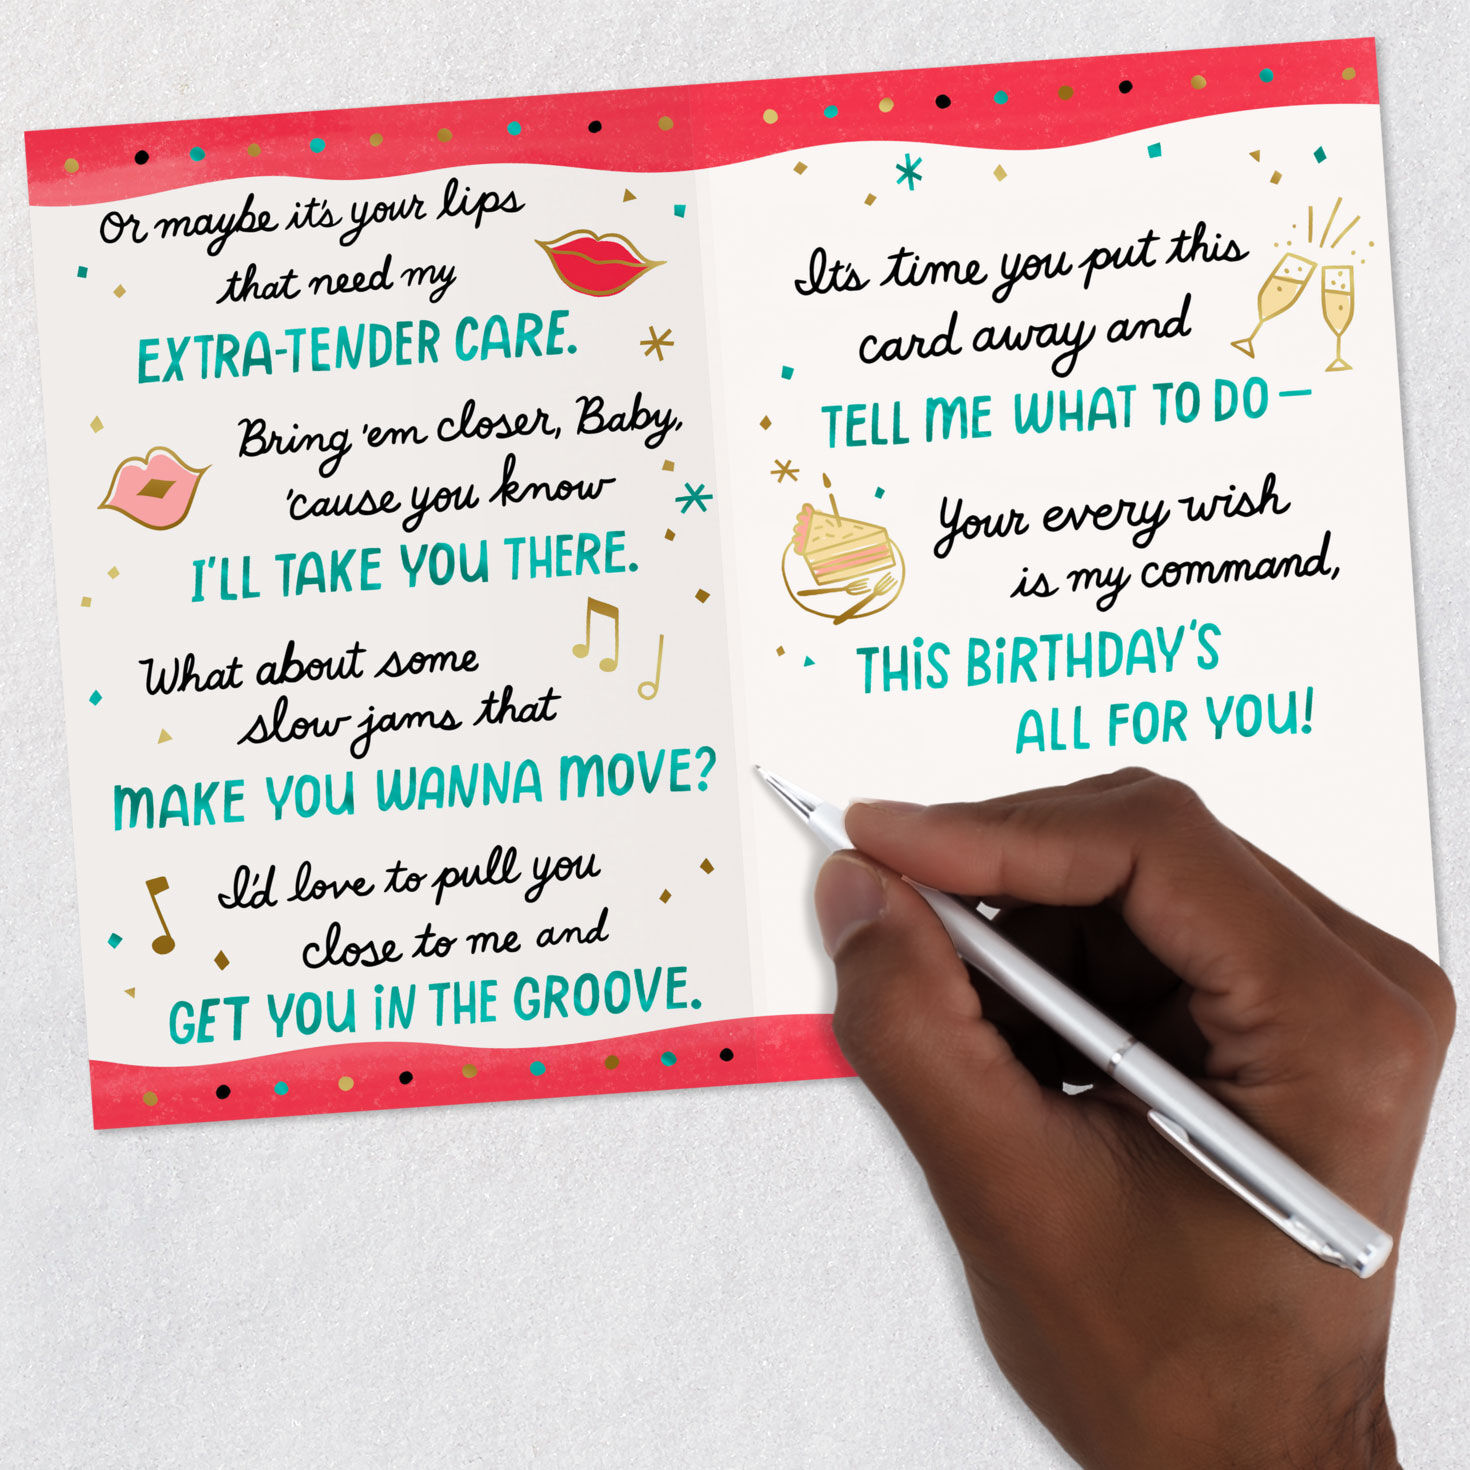 Or maybe it's your lips
that need my
EXTRA-TENDER CARE.
Bring 'em closer, Baby,
'cause you know
I'LL TAKE YOU THERE.
What about some
slow jams that
MAKE YOU WANNA MOVE?
I'd love to pull you
close to me and
GET YOU iN THE GROOVE.
It's time you put this
card away and
TELL ME WHAT TO DO –
Your every wish
is my command,
THiS BiRTHDAY'S
ALL FOR YOU!